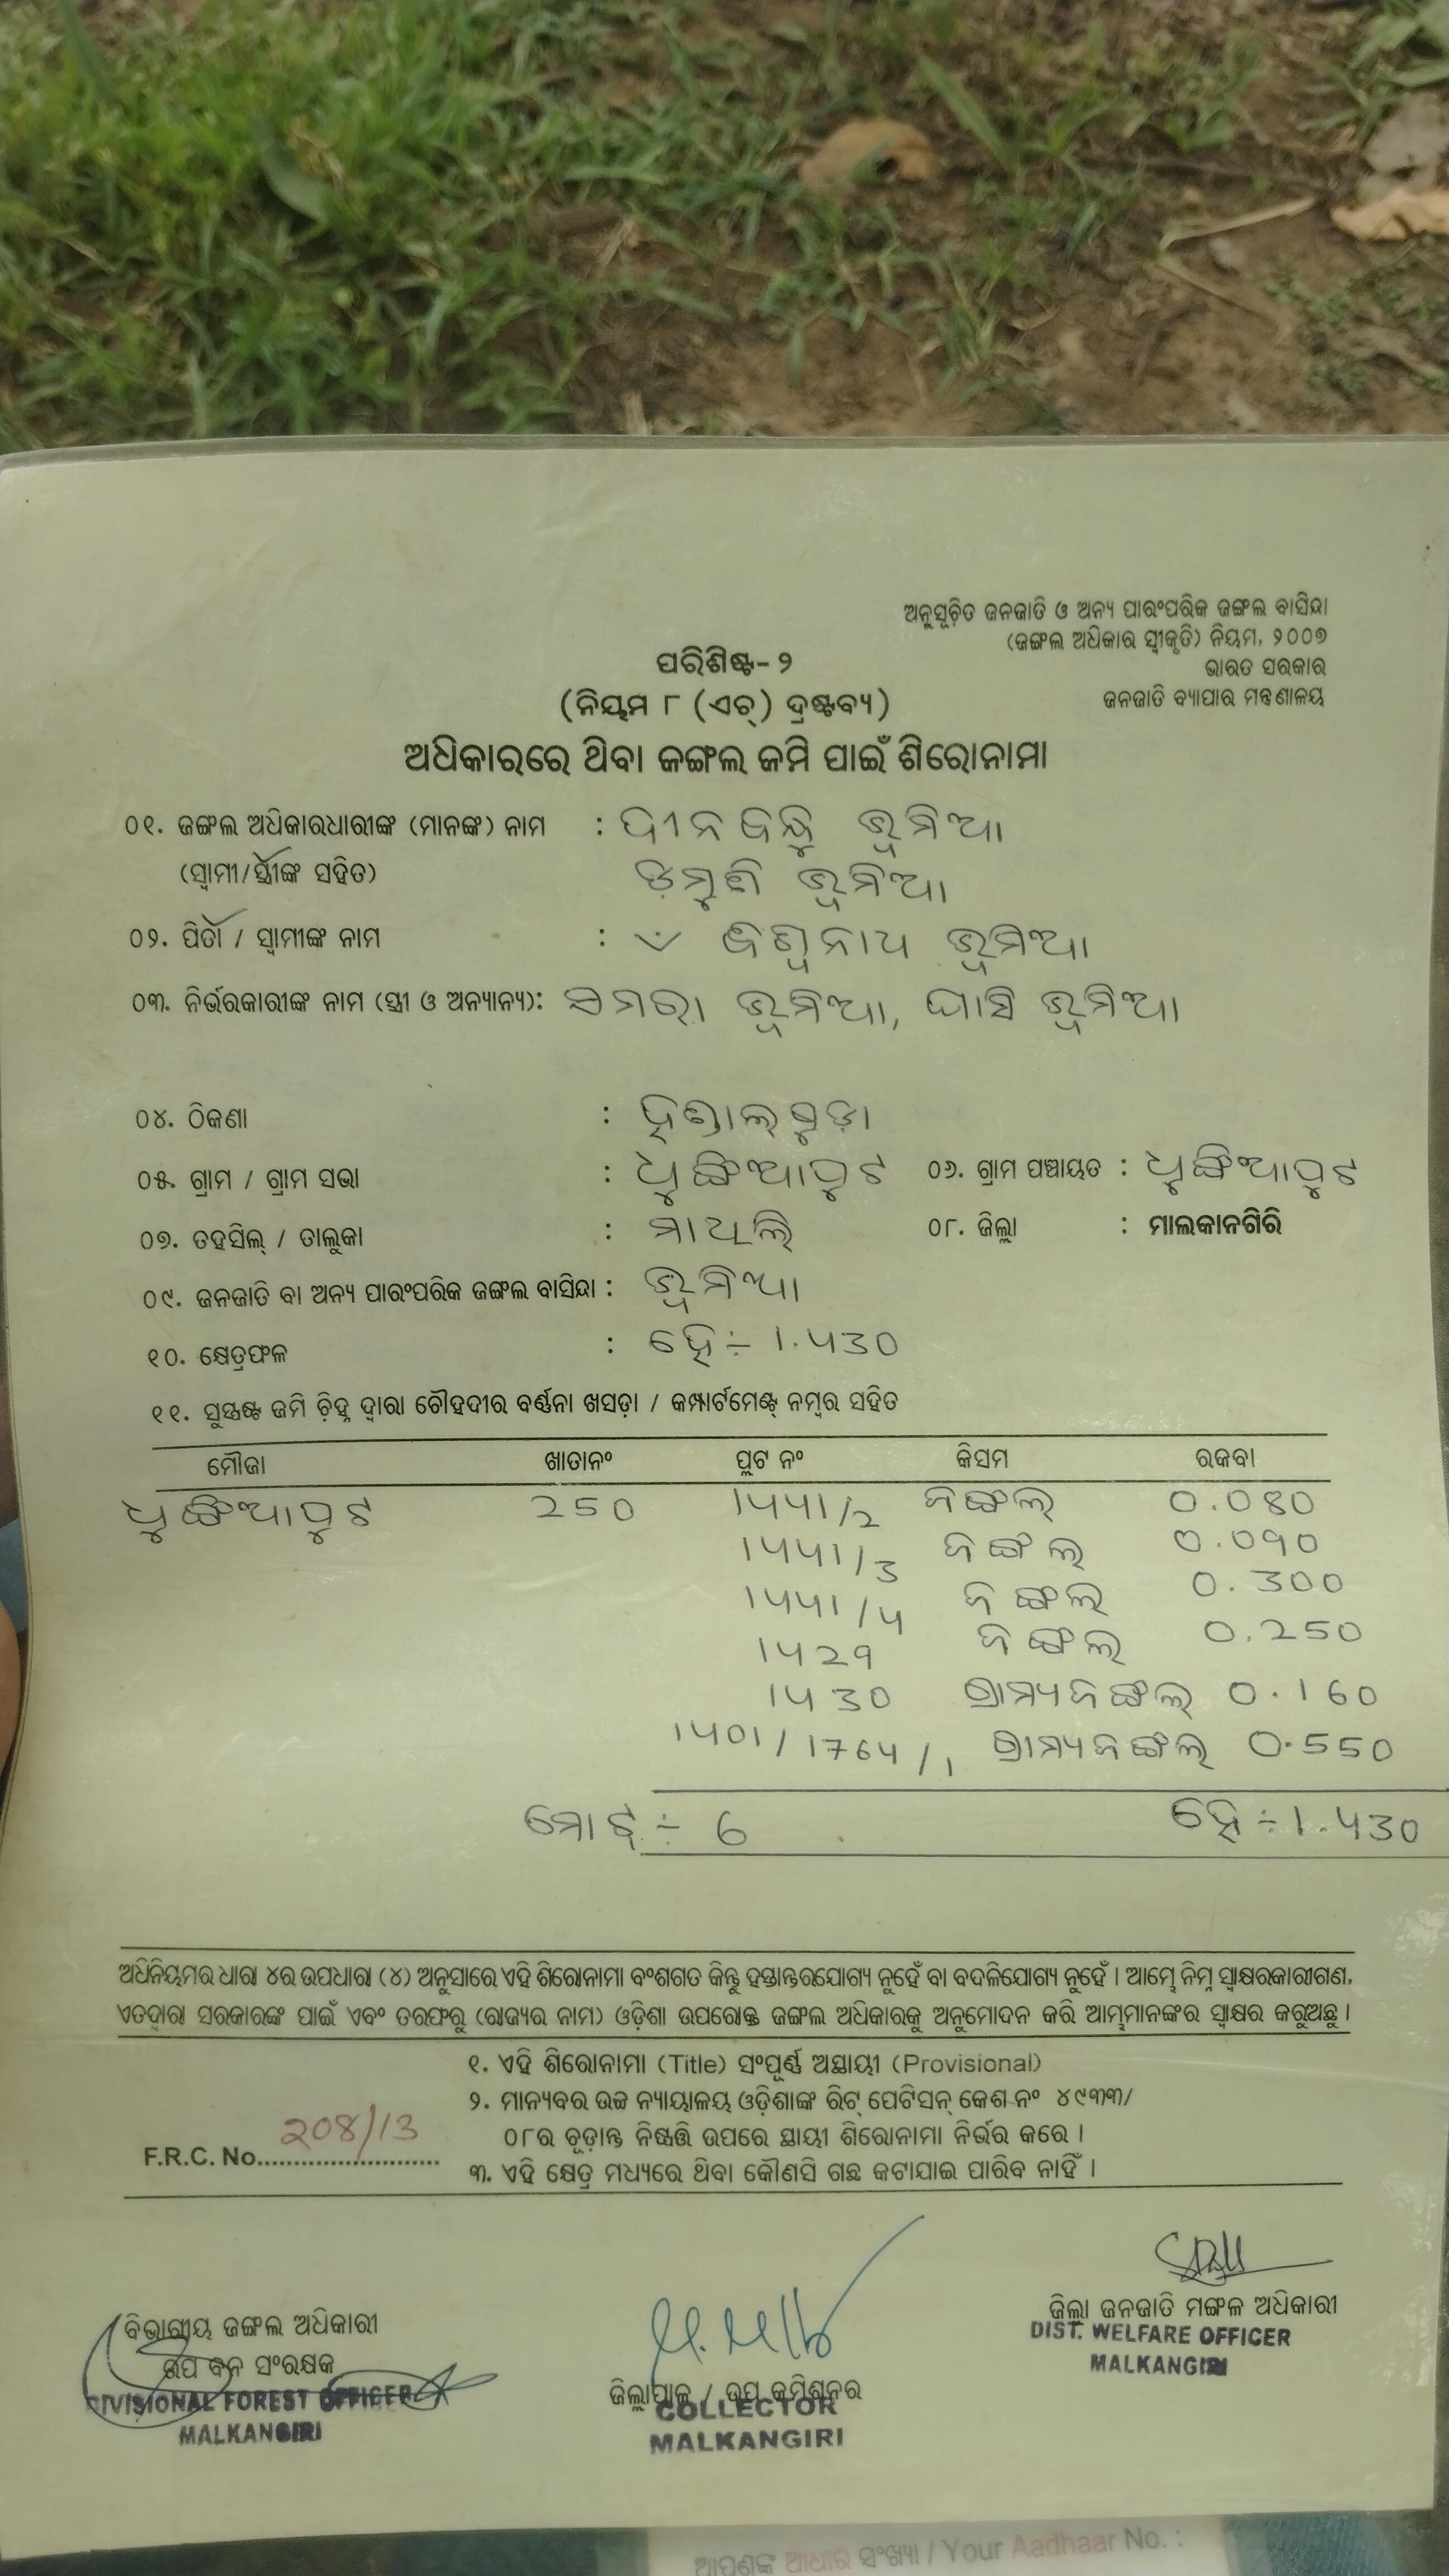 ଅନୁସୂଚିତ ଜନଜାତି ଓ ଅନ୍ୟ ପାରଂପରିକ ଜଙ୍ଗଲ ବାସିନ୍ଦା
(ଜଙ୍ଗଲ ଅଧିକାର ସ୍ୱୀକୃତି) ନିୟମ, ୨୦୦୭
ଭାରତ ସରକାର
ଜନଜାତି ବ୍ୟାପାର ମନ୍ତ୍ରଣାଳୟ
ପରିଶିଷ୍ଟ-୨
(ନିୟମ ୮ (ଏଚ୍) ଦ୍ରଷ୍ଟବ୍ୟ)
ଅଧିକାରରେ ଥିବା ଜଙ୍ଗଲ ଜମି ପାଇଁ ଶିରୋନାମା
୦୧. ଜଙ୍ଗଲ ଅଧିକାରଧାରୀଙ୍କ (ମାନଙ୍କ) ନାମ : ଦୀନବନ୍ଧୁ ଭୂମିଆ
(ସ୍ୱାମୀ/ସ୍ତ୍ରୀଙ୍କ ସହିତ) ଡମୁଣି ଭୂମିଆ
୦୨. ପିତା / ସ୍ୱାମୀଙ୍କ ନାମ : ବିଶ୍ୱନାଥ ଭୂମିଆ
୦୩. ନିର୍ଭରକାରୀଙ୍କ ନାମ (ସ୍ତ୍ରୀ ଓ ଅନ୍ୟାନ୍ୟ): ସମରା ଭୂମିଆ, ଘାସି ଭୂମିଆ
୦୪. ଠିକଣା :
୦୫. ଗ୍ରାମ / ଗ୍ରାମ ସଭା : ଧୁଙ୍ଗିଆପୁଟ ୦୬. ଗ୍ରାମ ପଞ୍ଚାୟତ : ଧୁଙ୍ଗିଆପୁଟ
୦୭. ତହସିଲ୍ / ତାଲୁକା : ମାଥିଲି ୦୮. ଜିଲ୍ଲା : ମାଲକାନଗିରି
୦୯. ଜନଜାତି ବା ଅନ୍ୟ ପାରଂପରିକ ଜଙ୍ଗଲ ବାସିନ୍ଦା : ଭୂମିଆ
୧୦. କ୍ଷେତ୍ରଫଳ : ହେ÷ 1.430
୧୧. ସୁସ୍ପଷ୍ଟ ଜମି ଚିହ୍ନ ଦ୍ୱାରା ଚୌହଦୀର ବର୍ଣ୍ଣନା ଖସଡ଼ା / କମ୍ପାର୍ଟମେଣ୍ଟ୍ ନମ୍ବର ସହିତ
ମୌଜା ଖାତାନଂ ପ୍ଲଟ ନଂ କିସମ ରକବା
ଧୁଙ୍ଗିଆପୁଟ 250 1441/2 ଜଙ୍ଗଲ 0.080
1441/3 ଜଙ୍ଗଲ 0.090
1441/4 ଜଙ୍ଗଲ 0.300
1429 ଜଙ୍ଗଲ 0.250
1430 ଗ୍ରାମ୍ୟଜଙ୍ଗଲ 0.160
1401/1764/1 ଗ୍ରାମ୍ୟଜଙ୍ଗଲ 0.550
ମୋଟ୍ ÷ 6 ହେ÷1.430
ଅଧିନିୟମର ଧାରା ୪ର ଉପଧାରା (୪) ଅନୁସାରେ ଏହି ଶିରୋନାମା ବଂଶଗତ କିନ୍ତୁ ହସ୍ତାନ୍ତରଯୋଗ୍ୟ ନୁହେଁ ବା ବଦଳିଯୋଗ୍ୟ ନୁହେଁ । ଆମ୍ଭେ ନିମ୍ନ ସ୍ୱାକ୍ଷରକାରୀଗଣ,
ଏତଦ୍ୱାରା ସରକାରଙ୍କ ପାଇଁ ଏବଂ ତରଫରୁ (ରାଜ୍ୟର ନାମ) ଓଡ଼ିଶା ଉପରୋକ୍ତ ଜଙ୍ଗଲ ଅଧିକାରକୁ ଅନୁମୋଦନ କରି ଆମ୍ଭମାନଙ୍କର ସ୍ୱାକ୍ଷର କରୁଅଛୁ ।
୧. ଏହି ଶିରୋନାମା (Title) ସଂପୂର୍ଣ୍ଣ ଅସ୍ଥାୟୀ (Provisional)
୨. ମାନ୍ୟବର ଉଚ୍ଚ ନ୍ୟାୟାଳୟ ଓଡ଼ିଶାଙ୍କ ରିଟ୍ ପେଟିସନ୍ କେଶ ନଂ ୪୯୩୩/
୦୮ର ଚୂଡ଼ାନ୍ତ ନିଷ୍ପତ୍ତି ଉପରେ ସ୍ଥାୟୀ ଶିରୋନାମା ନିର୍ଭର କରେ ।
F.R.C. No. 208/13
୩. ଏହି କ୍ଷେତ୍ର ମଧ୍ୟରେ ଥିବା କୌଣସି ଗଛ କଟାଯାଇ ପାରିବ ନାହିଁ ।
ବିଭାଗୀୟ ଜଙ୍ଗଲ ଅଧିକାରୀ
ଉପ ବନ ସଂରକ୍ଷକ
DIVISIONAL FOREST OFFICER
MALKANGIRI
ଜିଲ୍ଲାପାଳ / ଉପ କମିଶନର
COLLECTOR
MALKANGIRI
ଜିଲ୍ଲା ଜନଜାତି ମଙ୍ଗଳ ଅଧିକାରୀ
DIST. WELFARE OFFICER
MALKANGIRI
ଆପଣଙ୍କ ଆଧାର ସଂଖ୍ୟା / Your Aadhaar No. :